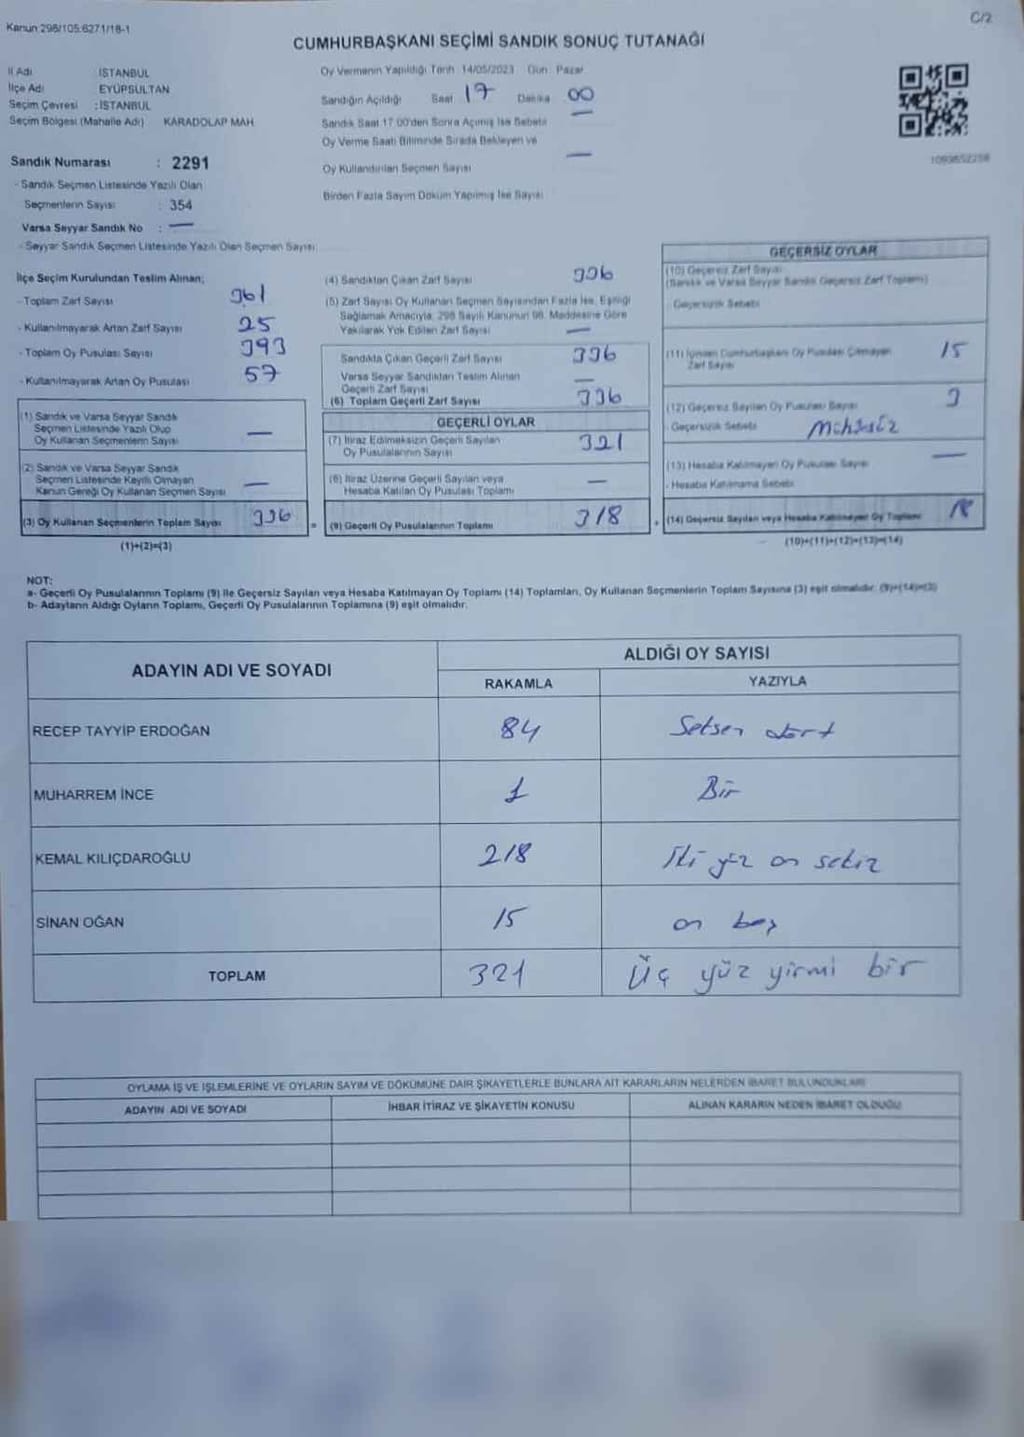 Kanun 298/105:6271/18-1
C/2
CUMHURBAŞKANI SEÇİMİ SANDIK SONUÇ TUTANAĞI
İl Adı : İSTANBUL
İlçe Adı EYÜPSULTAN
Seçim Çevresi : İSTANBUL
Seçim Bölgesi (Mahalle Adı) KARADOLAP MAH.
Sandık Numarası : 2291
- Sandık Seçmen Listesinde Yazılı Olan
Seçmenlerin Sayısı : 354
Varsa Seyyar Sandık No : —
- Seyyar Sandık Seçmen Listesinde Yazılı Olan Seçmen Sayısı
Oy Vermenin Yapıldığı Tarih 14/05/2023 Gün Pazar
Sandığın Açıldığı Saat 17 Dakika 00
Sandık Saat 17.00'den Sonra Açılmış İse Sebebi —
Oy Verme Saati Bitiminde Sırada Bekleyen ve
Oy Kullandırılan Seçmen Sayısı —
Birden Fazla Sayım Döküm Yapılmış İse Sayısı
İlçe Seçim Kurulundan Teslim Alınan;
- Toplam Zarf Sayısı 361
- Kullanılmayarak Artan Zarf Sayısı 25
- Toplam Oy Pusulası Sayısı 393
- Kullanılmayarak Artan Oy Pusulası 57
(1) Sandık ve Varsa Seyyar Sandık
Seçmen Listesinde Yazılı Olup
Oy Kullanan Seçmenlerin Sayısı —
(2) Sandık ve Varsa Seyyar Sandık
Seçmen Listesinde Kayıtlı Olmayan
Kanun Gereği Oy Kullanan Seçmen Sayısı —
(3) Oy Kullanan Seçmenlerin Toplam Sayısı 336
(1)+(2)=(3)
(4) Sandıktan Çıkan Zarf Sayısı 336
(5) Zarf Sayısı Oy Kullanan Seçmen Sayısından Fazla İse, Eşitliği
Sağlamak Amacıyla, 298 Sayılı Kanunun 98. Maddesine Göre
Yakılarak Yok Edilen Zarf Sayısı —
Sandıkta Çıkan Geçerli Zarf Sayısı 336
Varsa Seyyar Sandıktan Teslim Alınan
Geçerli Zarf Sayısı —
(6) Toplam Geçerli Zarf Sayısı 336
GEÇERLİ OYLAR
(7) İtiraz Edilmeksizin Geçerli Sayılan
Oy Pusulalarının Sayısı 321
(8) İtiraz Üzerine Geçerli Sayılan veya
Hesaba Katılan Oy Pusulası Toplamı —
= (9) Geçerli Oy Pusulalarının Toplamı 318
GEÇERSİZ OYLAR
(10) Geçersiz Zarf Sayısı
(Sandık ve Varsa Seyyar Sandık Geçersiz Zarf Toplamı)
- Geçersizlik Sebebi
(11) İçinden Cumhurbaşkanı Oy Pusulası Çıkmayan
Zarf Sayısı 15
(12) Geçersiz Sayılan Oy Pusulası Sayısı 3
- Geçersizlik Sebebi Mühürsüz
(13) Hesaba Katılmayan Oy Pusulası Sayısı —
- Hesaba Katılmama Sebebi
+ (14) Geçersiz Sayılan veya Hesaba Katılmayan Oy Toplamı 18
(10)+(11)+(12)+(13)=(14)
NOT:
a- Geçerli Oy Pusulalarının Toplamı (9) ile Geçersiz Sayılan veya Hesaba Katılmayan Oy Toplamı (14) Toplamları, Oy Kullanan Seçmenlerin Toplam Sayısına (3) eşit olmalıdır. (9)+(14)=(3)
b- Adayların Aldığı Oyların Toplamı, Geçerli Oy Pusulalarının Toplamına (9) eşit olmalıdır.
ADAYIN ADI VE SOYADI
ALDIĞI OY SAYISI
RAKAMLA YAZIYLA
RECEP TAYYİP ERDOĞAN 84 Seksen dört
MUHARREM İNCE 1 Bir
KEMAL KILIÇDAROĞLU 218 İki yüz on sekiz
SİNAN OĞAN 15 on beş
TOPLAM 321 Üç yüz yirmi bir
OYLAMA İŞ VE İŞLEMLERİNE VE OYLARIN SAYIM VE DÖKÜMÜNE DAİR ŞİKAYETLERLE BUNLARA AİT KARARLARIN NELERDEN İBARET BULUNDUKLARI
ADAYIN ADI VE SOYADI İHBAR İTİRAZ VE ŞİKAYETİN KONUSU ALINAN KARARIN NEDEN İBARET OLDUĞU